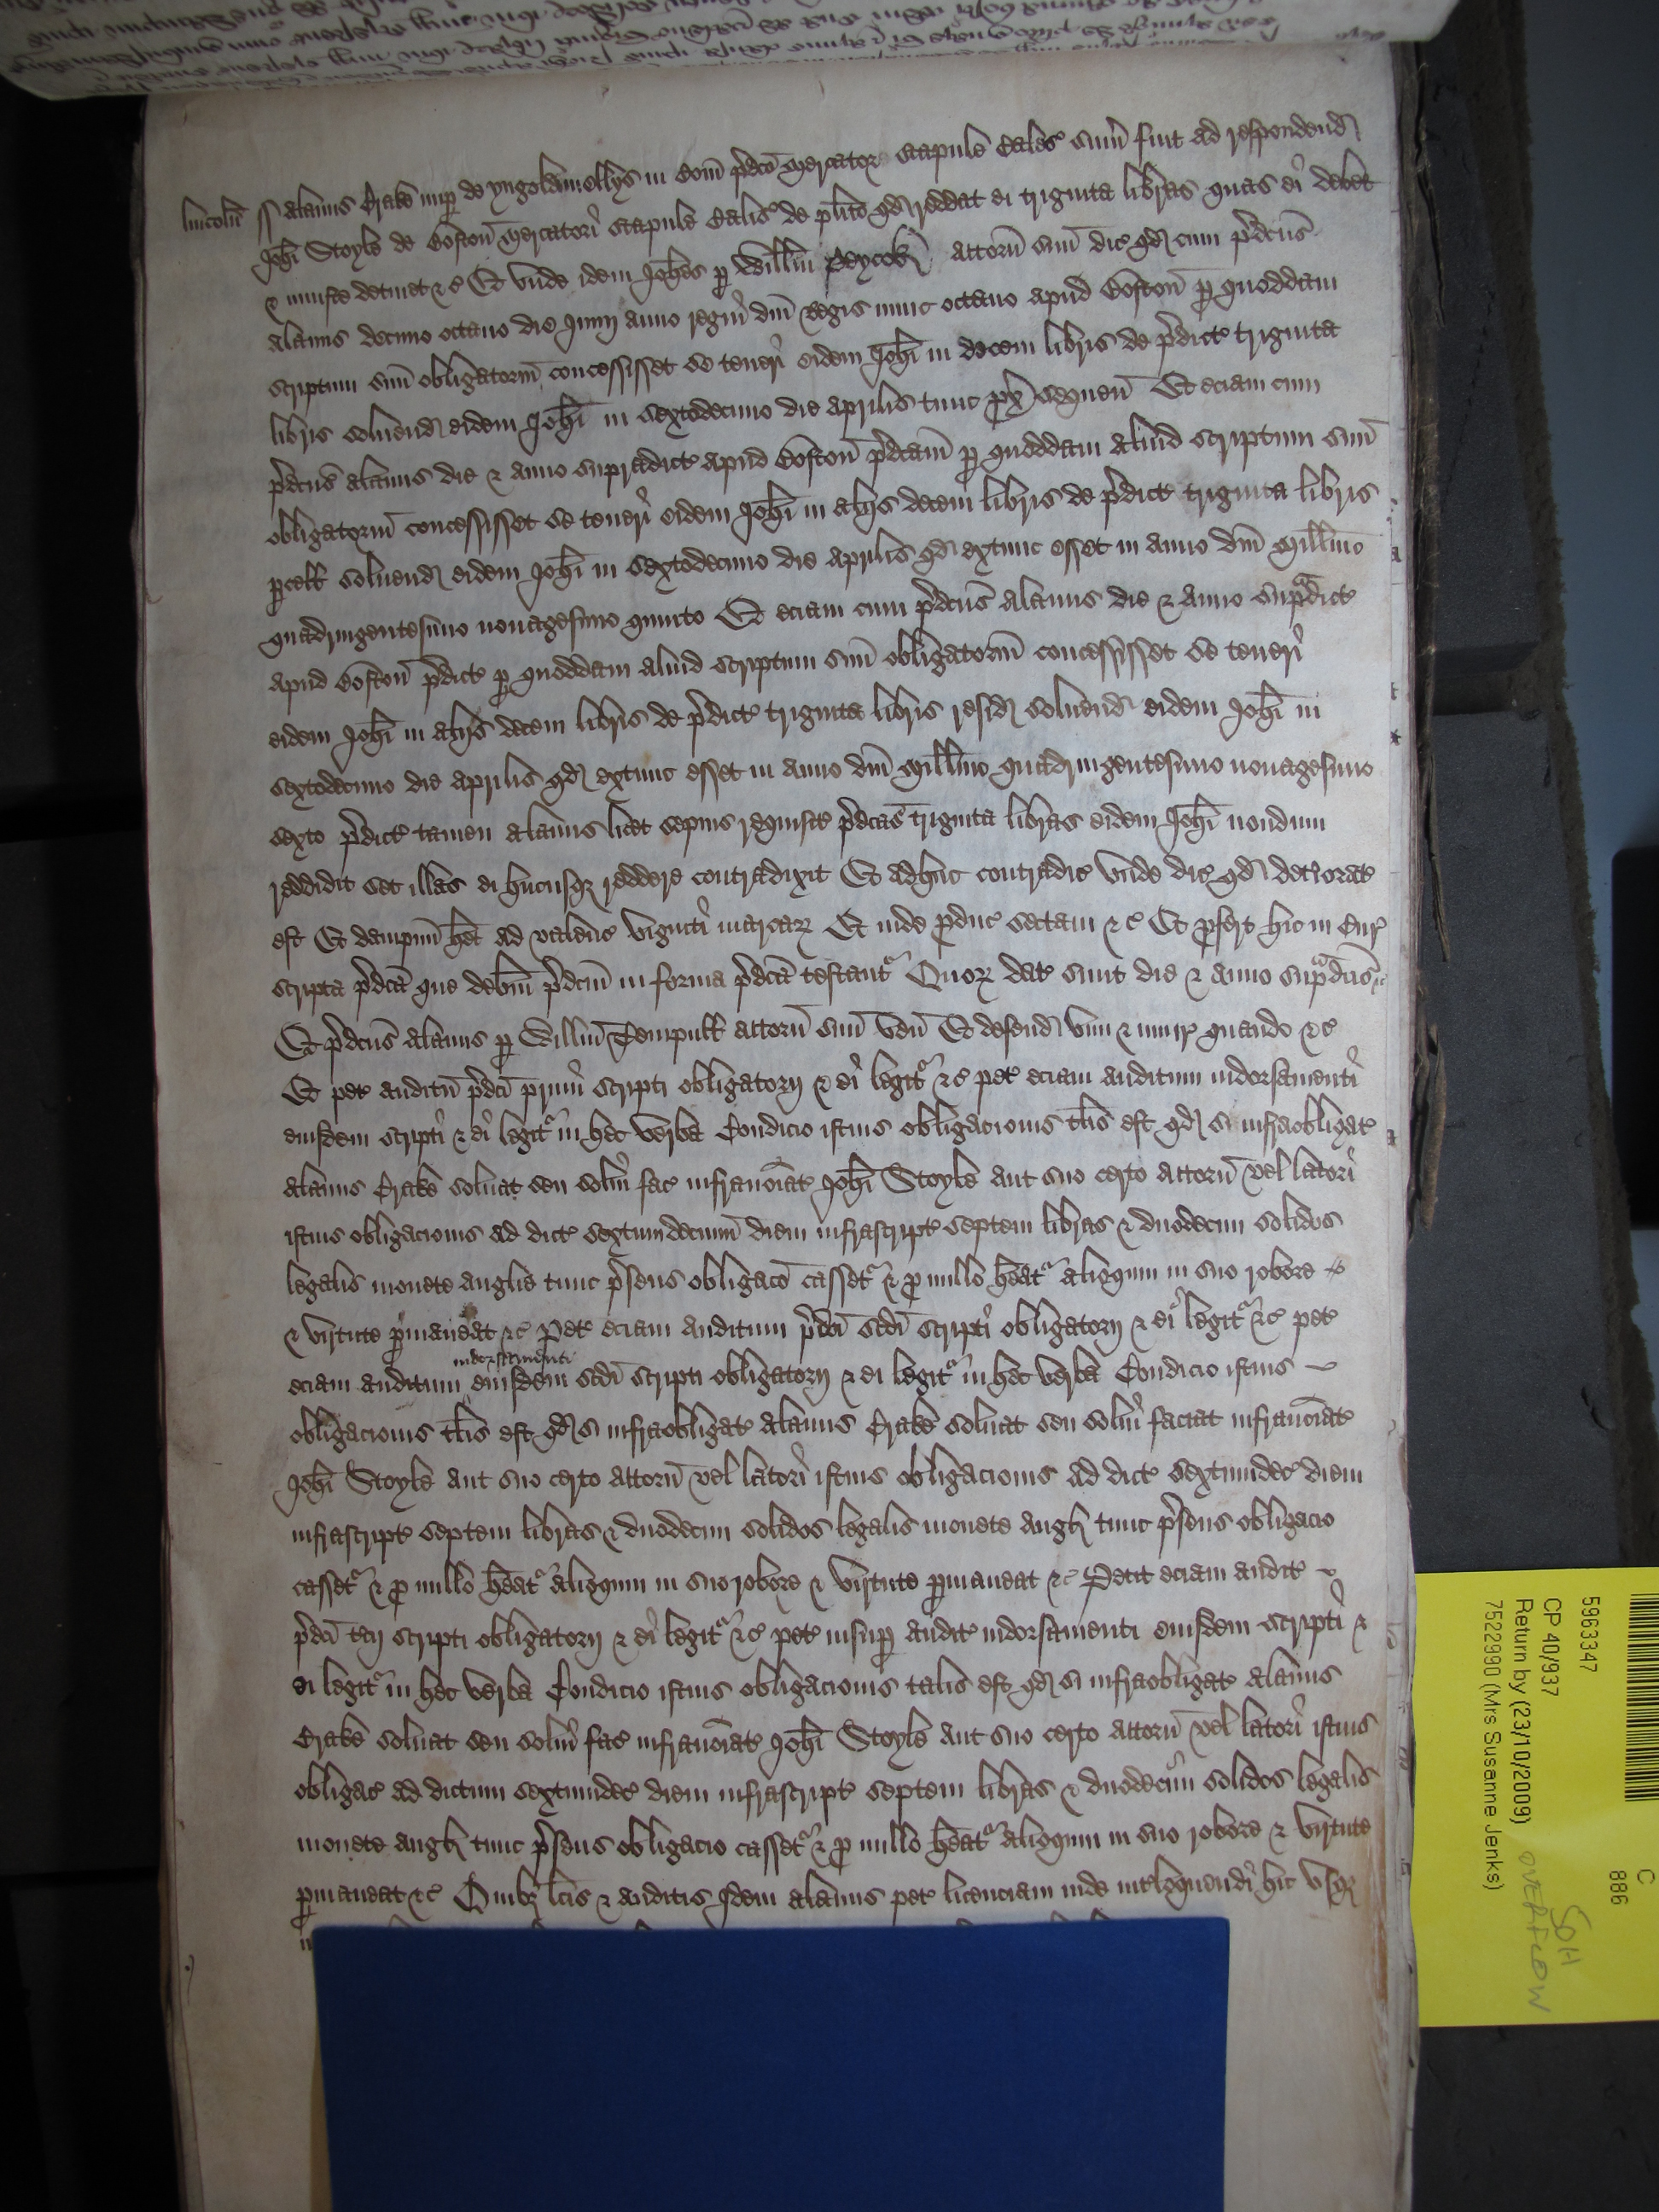 lincoln̄ ss Alanus Crake nup̱ de yngoldmellys in Com̄ p̄dc̄o Mercator Stapule Cales̛ sum̄ fuit ad respondend̛
Joh̄i Stoyle de Boston̄ Mercatori Stapule Calis̛ de pl̄ito qd̛ reddat ei triginta libras quas ei debet
& iniuste detinet &c̛ Et vnde idem Joh̄es p̱ Will̄m Peycok̛ attorn̄ suū dic̛ qd̛ cum p̄dc̄us
Alanus decimo octauo die Junij anno regni dn̄i Regis nunc octauo apud Boston̄ p̱ quoddam
scriptum suū obligatoriū concessisset se teneri eidem Joh̄i in decem libris de p̄dict̛ triginta
libris soluend̛ eidem Joh̄i in sextodecimo die Aprilis tunc px̄ sequen̄ Et eciam cum
p̄dc̄us Alanus die & anno supradict̛ apud Boston̄ p̄dc̄am p̱ quoddam aliud scriptum suū
obligatoriū concessisset se teneri eidem Joh̄i in alijs decem libris de p̄dict̛ triginta libris
p̱cell̛ soluend̛ eidem Joh̄i in sextodecimo die Aprilis qd̛ extunc esset in anno dn̄i Mill̄mo
quadringentesimo nonagesimo quinto Et eciam cum p̄dc̄us Alanus die & anno sup̱dict̛
apud Boston̄ p̄dict̛ p̱ quoddam aliud scriptum suū obligatoriū concessisset se teneri
eidem Joh̄i in alijs decem libris de p̄dict̛ triginta libris resid̛ soluend̛ eidem Joh̄i in
sextodecimo die Aprilis qd̛ extunc esset in anno dn̄i Mill̄mo quadringentesimo nonagesimo
sexto p̄dict̛ tamen Alanus licet sepius requisit̛ p̄dc̄as triginta libras eidem Joh̄i nondum
reddidit set illas ei hucusqꝫ reddere contradixit Et adhuc contradic̛ vnde dic̛ qd̛ det̛iorat̛
est Et dampnū h̄et ad valenc̛ viginti marcaꝝ Et inde p̱duc̛ sectam &c̛ Et p̱fert hic in Cur̛
scripta p̄dc̄a que debm̄ p̄dc̄m in forma p̄dc̄a testant̛ Quoꝝ dat̛ sunt die & anno sup̱dc̄is &c̛
Et p̄dc̄us Alanus p̱ Will̄m Tempull̛ attorn̄ suū ven̄ Et defend̛ vim & iniur̛ quando &c̛
Et pet̛ auditū p̄dc̄i primi scripti obligatorij & ei legit̛ &c̛ pet̛ eciam auditum indorsamenti
eiusdem scripti & ei legit̛ in hec verba Condicio istius obligacionis tl̄is est qd̛ si infraobligat̛
Alanus Crake soluat seu solui fac̛ infranoīat̛ Joh̄i Stoyle aut suo certo attorn̄ vel latori
istius obligacionis ad dict̛ sextumdecimū diem infrascript̛ septem libras & duodecim solidos
legalis monete Anglie tunc p̄sens obligac̄o casset̛ & p̱ nullo h̄eat̛ alioquin in suo robore
& virtute p̱maneat &c̛ Pet̛ eciam auditum p̄dc̄i scd̄i scripti obligatorij & ei legit̛ &c̛ pet̛
eciam auditum indorsamenti eiusdem scd̄i scripti obligatorij & ei legit̛ in hec verba Condicio istius
obligacionis tl̄is est qd̛ si infraobligat̛ Alanus Crake soluat seu solui faciat infranoīat̛
Joh̄i Stoyle aut suo certo attorn̄ vel latori istius obligacionis ad dict̛ sextumdec̛ diem
infrascript̛ septem libras & duodecim solidos legalis monete Angl̛ tunc p̄sens obligacio
casset̛ & p̱ nullo h̄eat̛ alioquin in suo robore & virtute p̱maneat &c̛ Petit eciam audit̛
p̄dc̄i tcij scripti obligatorij & ei legit̛ &c̛ pet̛ insup̱ audit̛ indorsamenti eiusdem scripti &
ei legit̛ in hec verba Condicio istius obligacionis talis est qd̛ si infraobligat̛ Alanus
Crake soluat seu solui fac̛ infranoīat̛ Joh̄i Stoyle aut suo certo attorn̄ vel latori istius
obligac̛ ad dictum sextumdec̛ diem infrascript̛ septem libras & duodecim solidos legalis
monete Angl̛ tunc p̄sens obligacio casset̛ & p̱ nullo h̄eat̛ alioquin in suo robore & virtute
p̱maneat &c̛ Quibꝫ lc̄is & auditis idem Alanus pet̛ licenciam inde int̛loquendi hic vsqꝫ
5963347
CP 40/937
Return by (23/10/2009)
7522990 (Mrs Susanne Jenks)
C
886
SOH
OVERFLOW